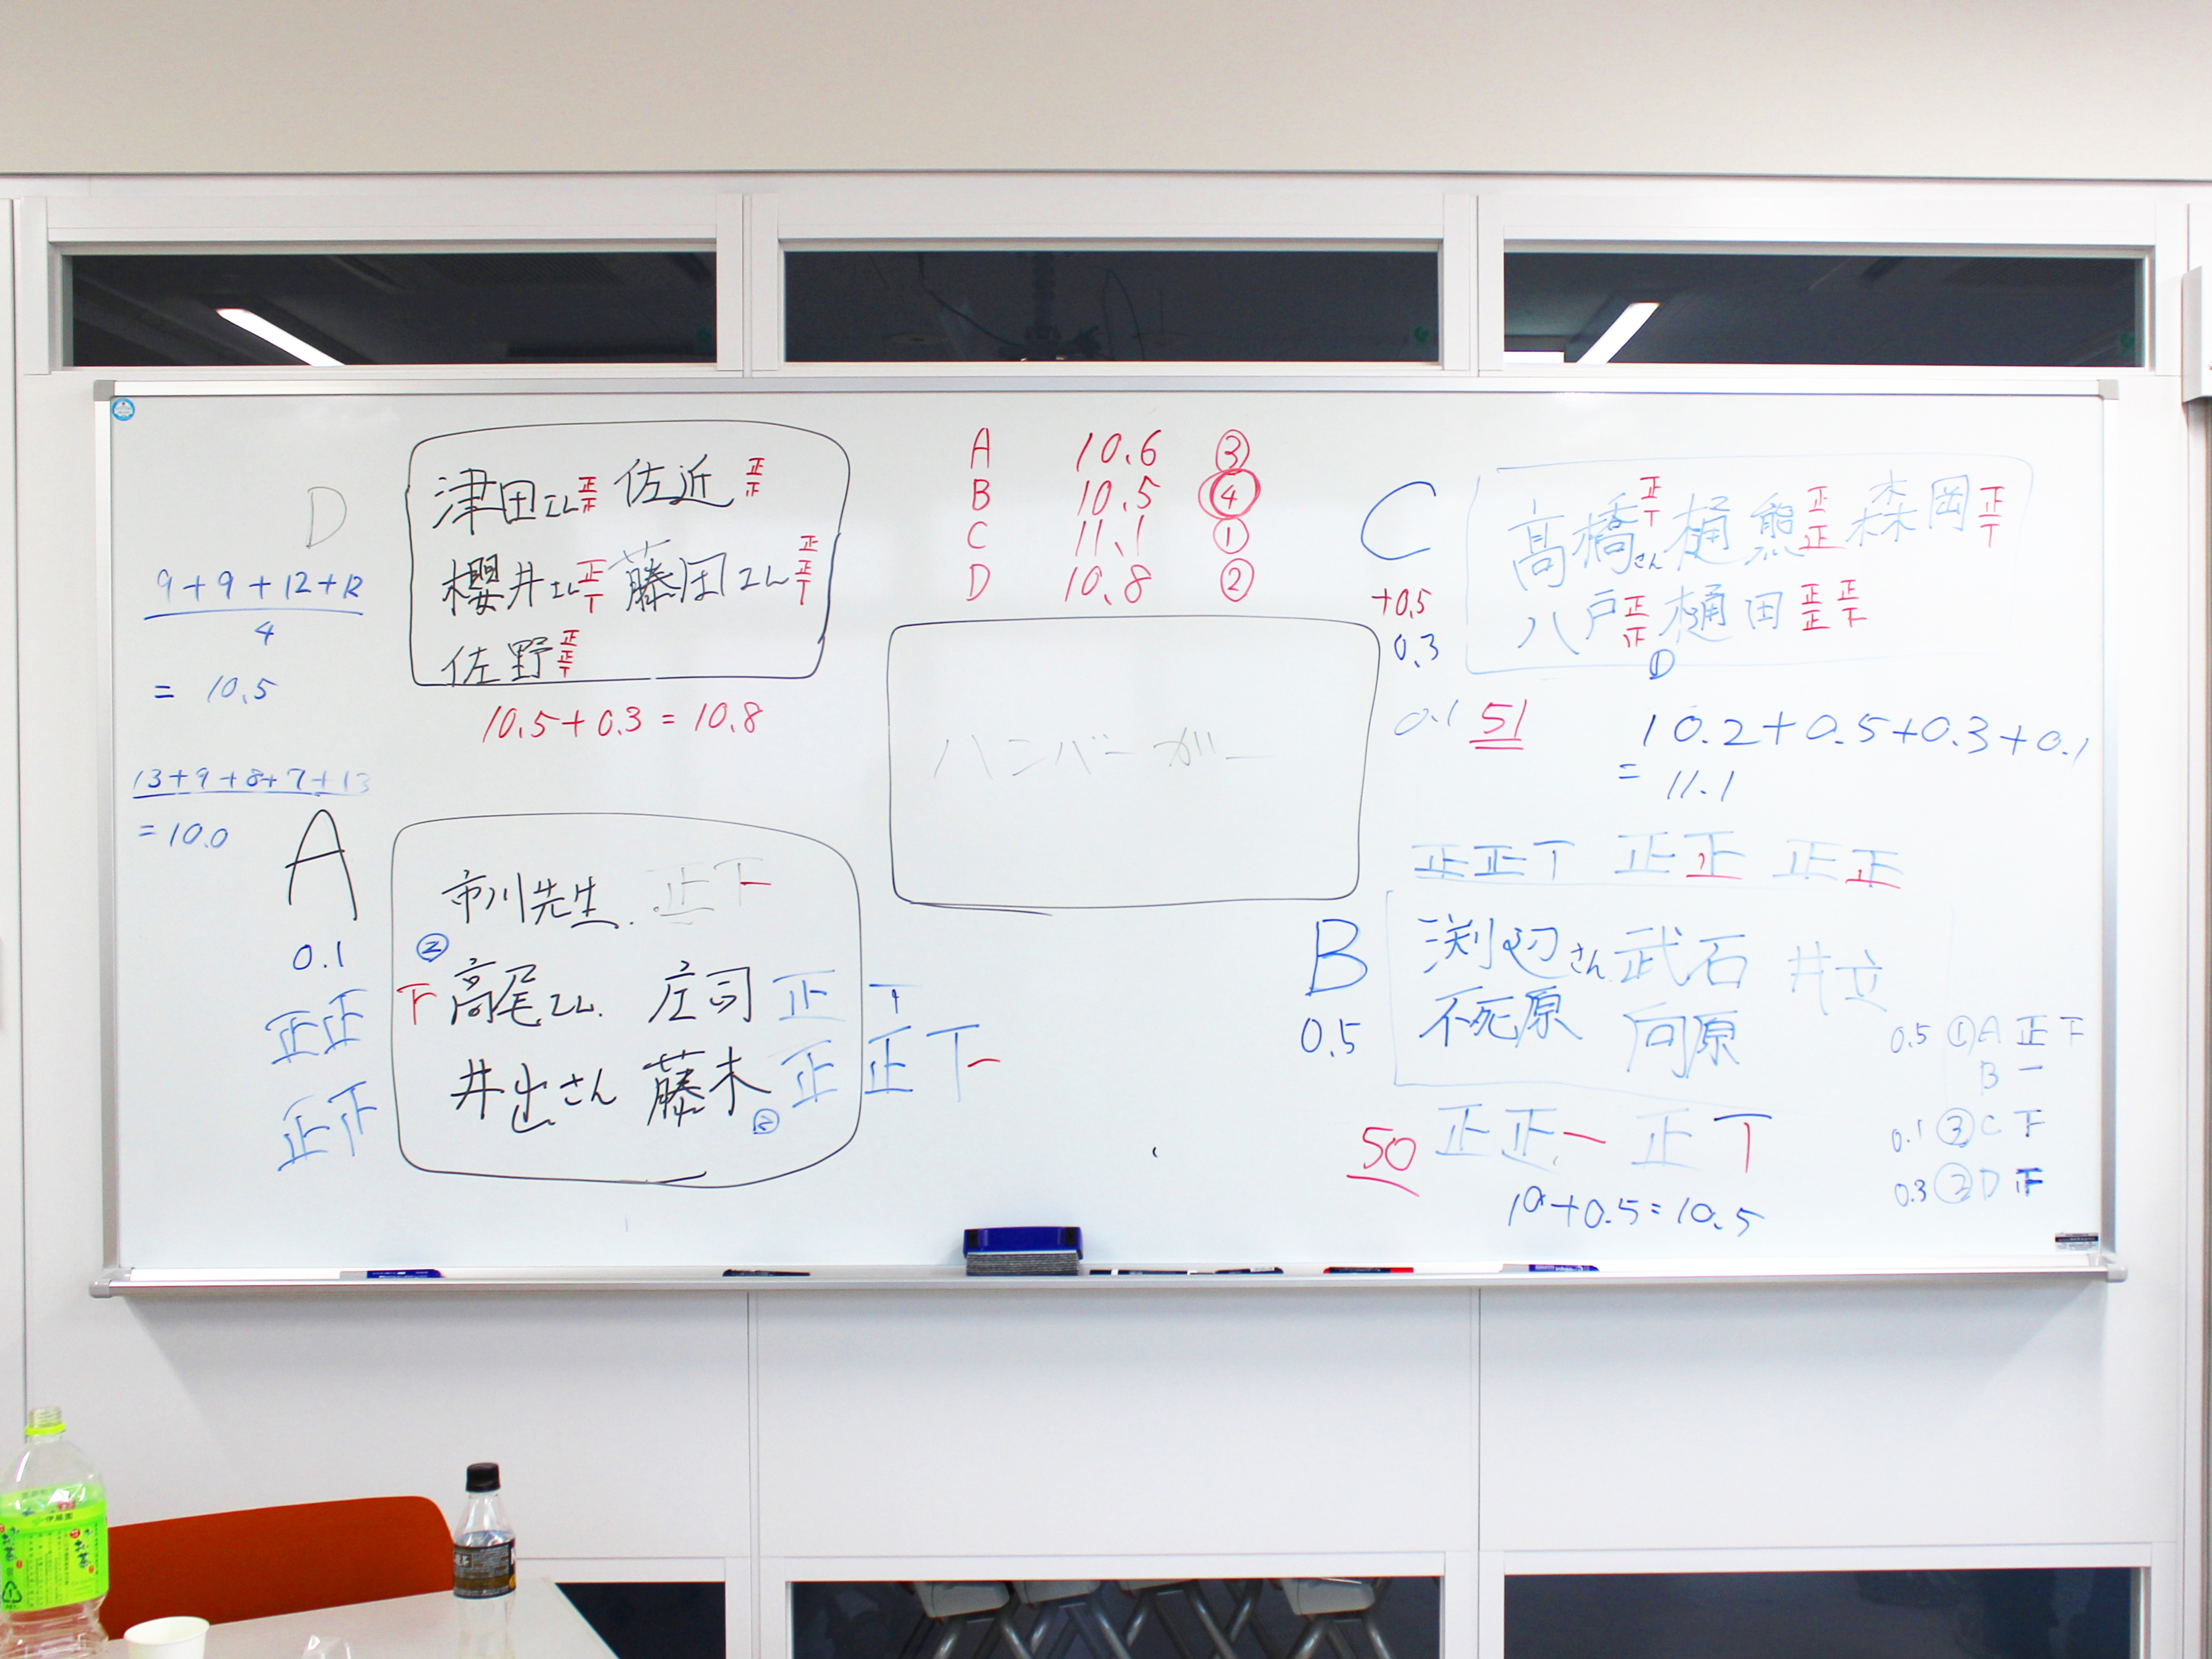 D
9+9+12+12
4
= 10.5
13+9+8+7+13
= 10.0
津田さん 正下 佐近 正正
櫻井さん 正丁 藤田さん 正正丁
佐野 正正丁
10.5+0.3=10.8
A 10.6 ③
B 10.5 ④
C 11.1 ①
D 10.8 ②
ハンバーガー
C
+0.5
0.3
0.1
51
高橋さん 正丁 樋熊 正正 森岡 正丁
八戸 正正 樋田 正正正下
①
10.2+0.5+0.3+0.1
= 11.1
A
0.1
正正
正下
市川先生. 正下一
②
下 高尾さん. 庄司 正丁
井出さん 藤木 正正丁一
②
正正丁 正正 正正
B
0.5
渕辺さん 武石 井立
不死原 向原
50
正正一 正丁
10+0.5=10.5
0.5 ① A 正下
B 一
0.1 ③ C 下
0.3 ② D 正